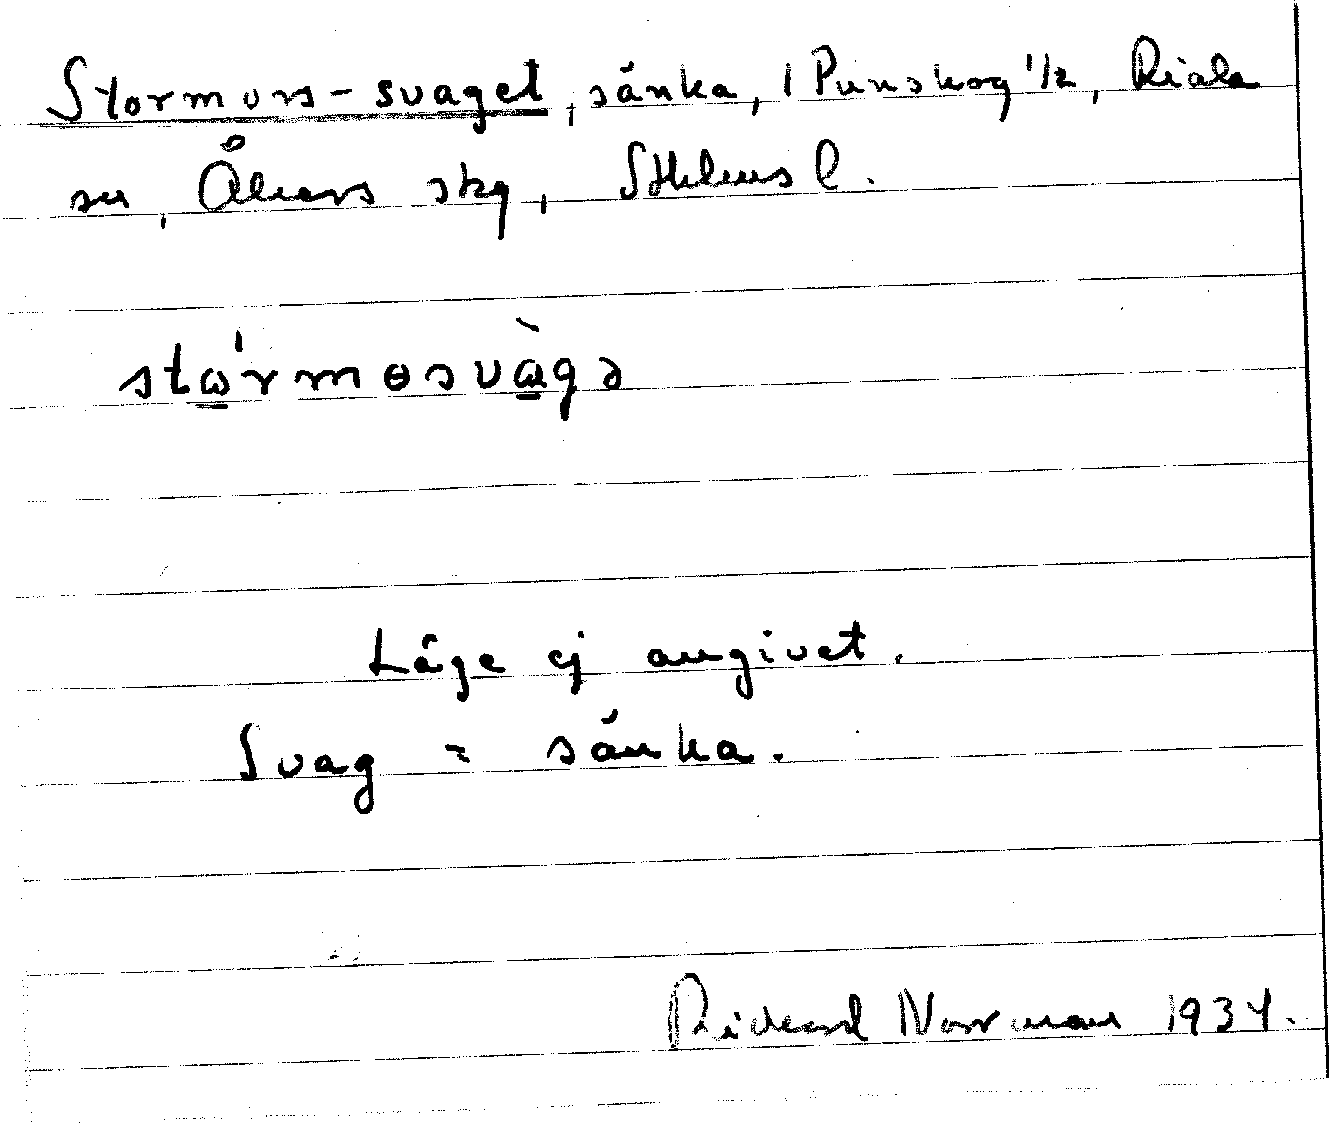 Stormors-svaget, sänka, i Punskog 1/2, Riala
sn, Åkers skg, Sthlms l.
stώ̲rmɵsvàgə
Läge ej angivet.
Svag = sänka.
Rickard Norrman 1934.